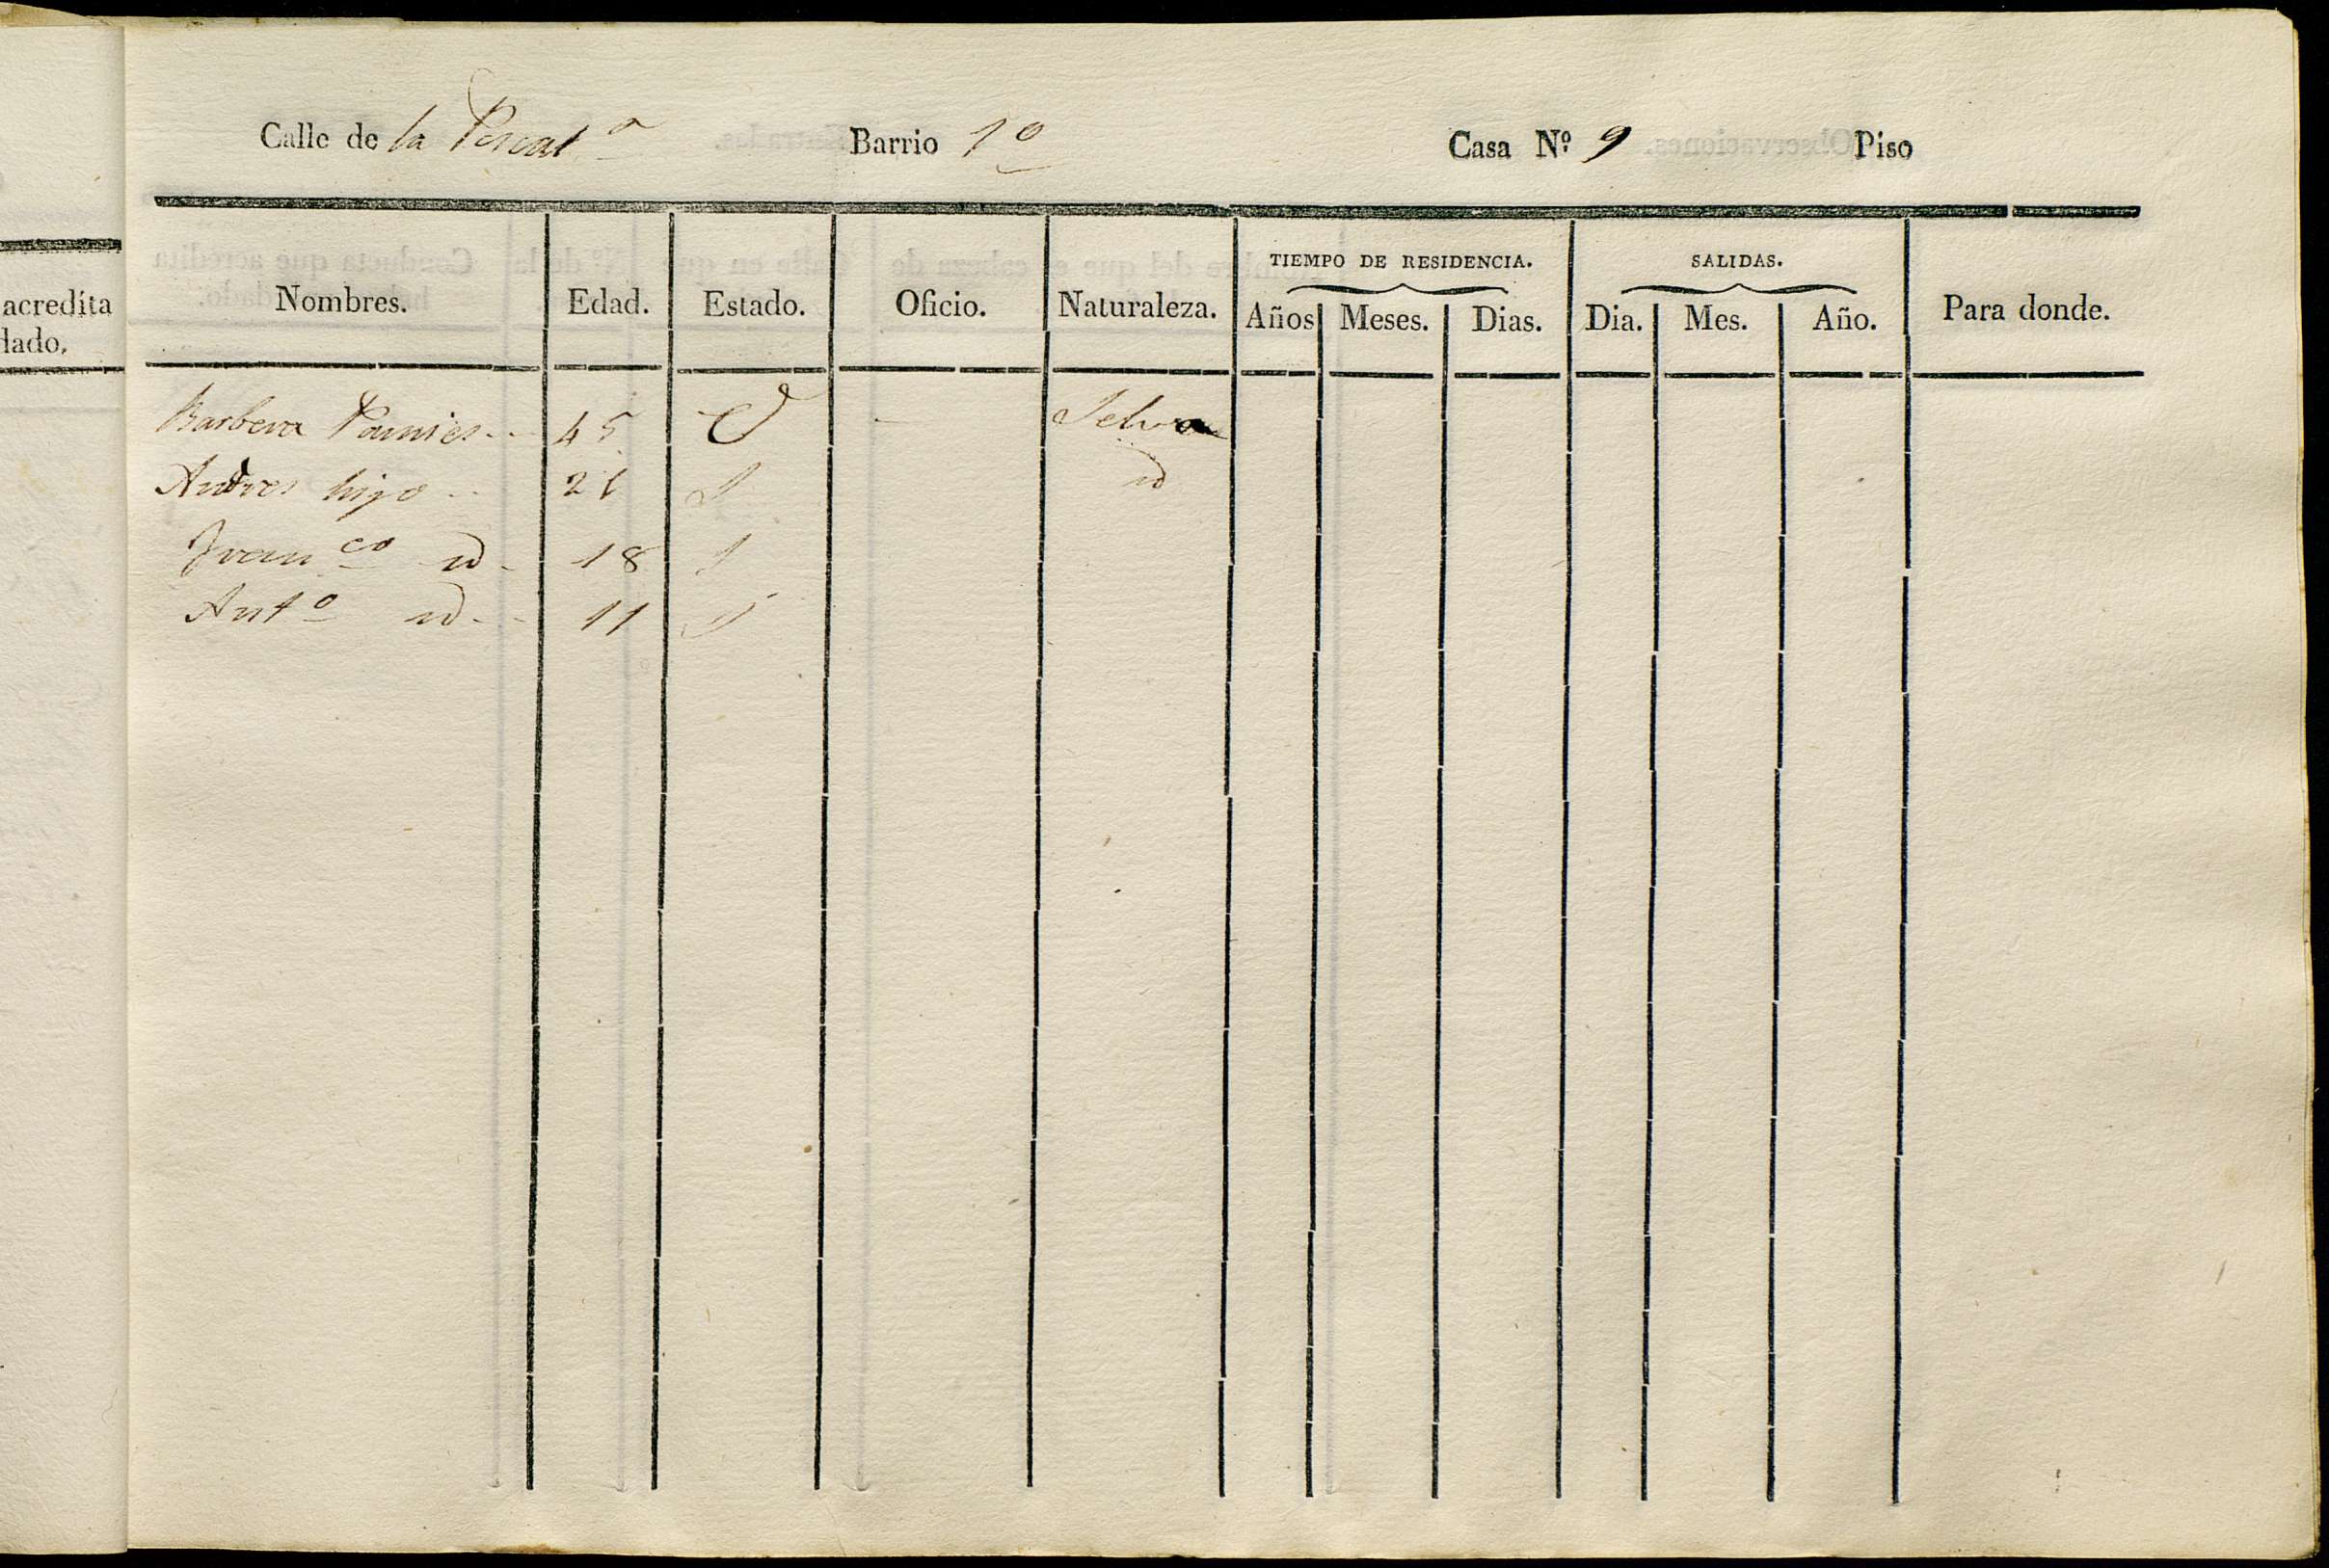 Calle de la Pescat.ª Barrio 1º Casa Nº 9 Piso
acredita
dado.
TIEMPO DE RESIDENCIA. SALIDAS.
Nombres. Edad. Estado. Oficio. Naturaleza. Años Meses. Dias. Dia. Mes. Año. Para donde.
Barbera Pamies 45 V Selva
Andres hijo 21 S id
Fran.co id 18 S
Ant.o id 11 S